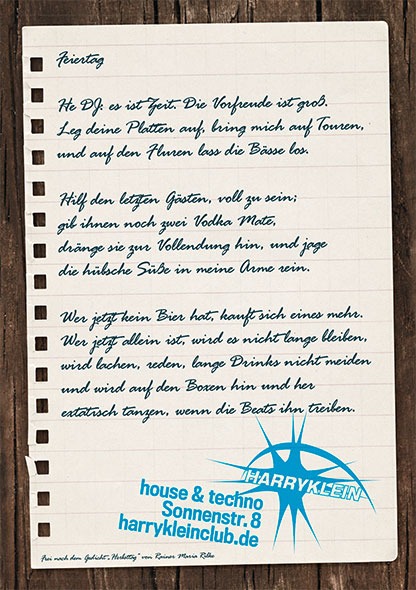 Feiertag
He DJ: es ist Zeit. Die Vorfreude ist groß.
Leg deine Platten auf, bring mich auf Touren,
und auf den Fluren lass die Bässe los.
Hilf den letzten Gästen, voll zu sein;
gib ihnen noch zwei Vodka Mate,
dränge sie zur Vollendung hin, und jage
die hübsche Süße in meine Arme rein.
Wer jetzt kein Bier hat, kauft sich eines mehr.
Wer jetzt allein ist, wird es nicht lange bleiben,
wird lachen, reden, lange Drinks nicht meiden
und wird auf den Boxen hin und her
extatisch tanzen, wenn die Beats ihn treiben.
HARRYKLEIN
house & techno
Sonnenstr. 8
harrykleinclub.de
Frei nach dem Gedicht „Herbsttag" von Rainer Maria Rilke